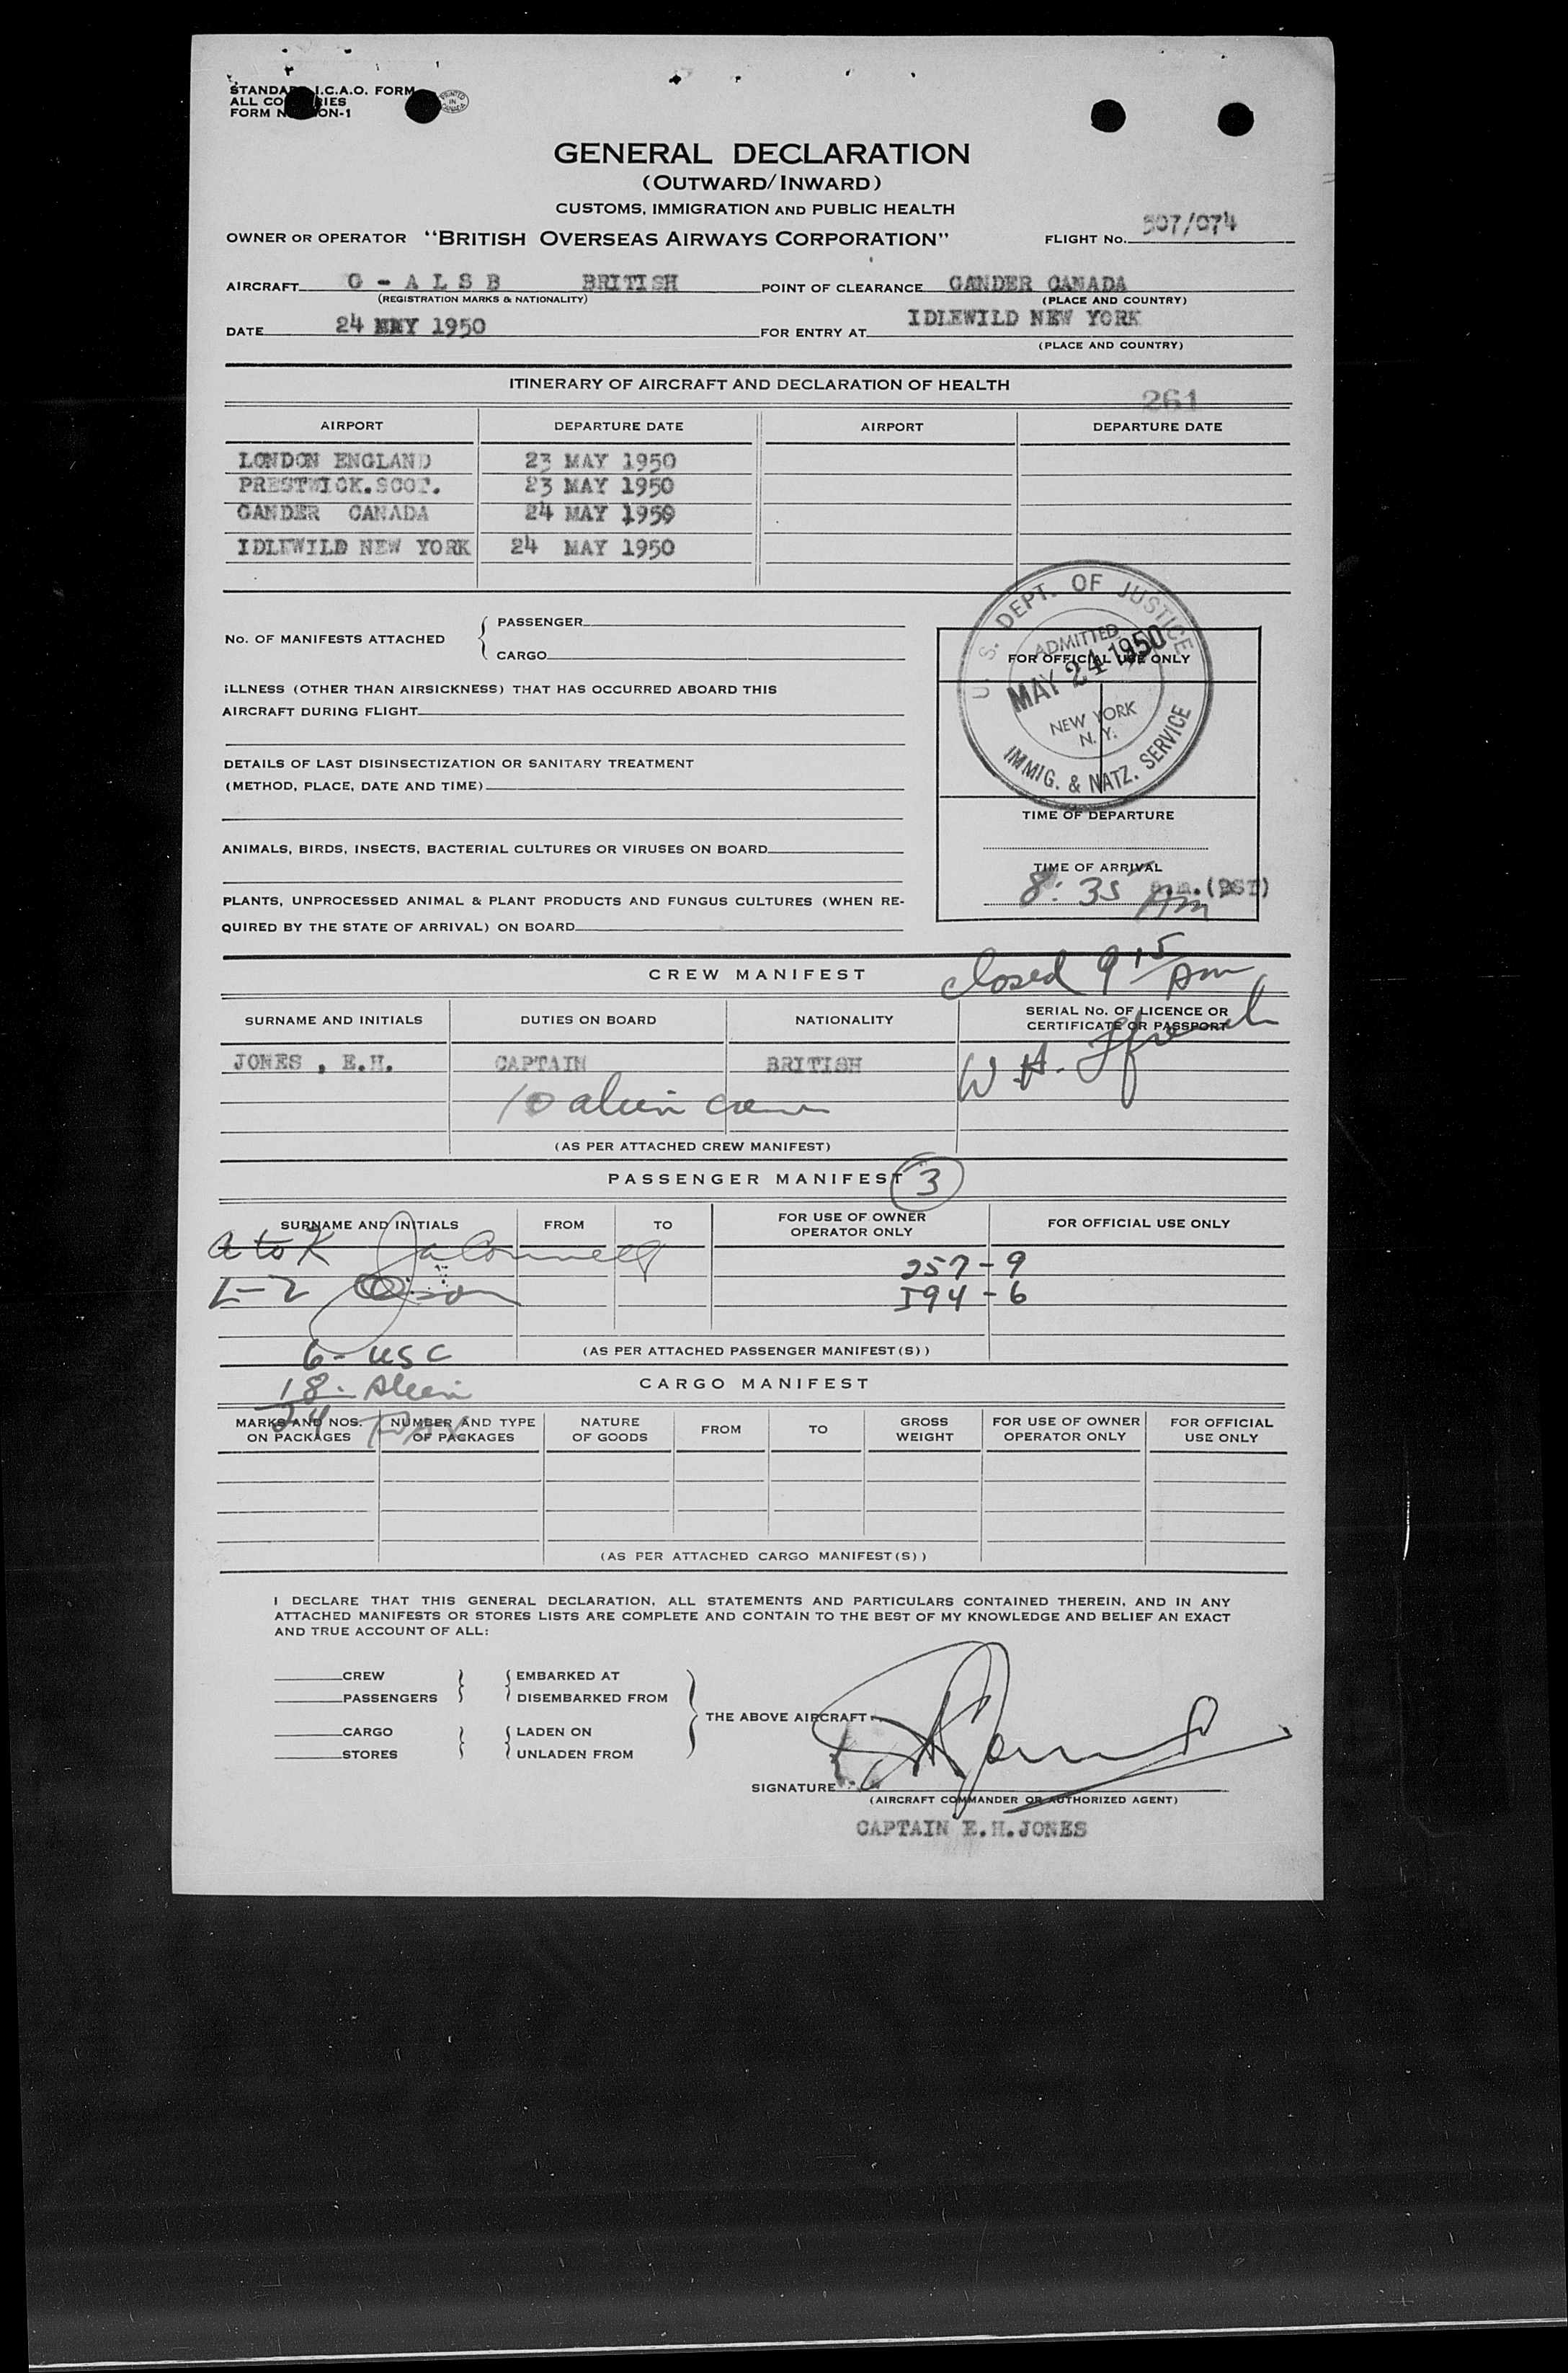 STANDARD I.C.A.O. FORM
ALL COUNTRIES
FORM N ON-1
PRINTED IN CANADA
GENERAL DECLARATION
(OUTWARD/INWARD)
CUSTOMS, IMMIGRATION AND PUBLIC HEALTH
OWNER OR OPERATOR "BRITISH OVERSEAS AIRWAYS CORPORATION" FLIGHT No. 507/074
AIRCRAFT G - A L S B BRITISH POINT OF CLEARANCE GANDER CANADA
(REGISTRATION MARKS & NATIONALITY) (PLACE AND COUNTRY)
DATE 24 MAY 1950 FOR ENTRY AT IDLEWILD NEW YORK
(PLACE AND COUNTRY)
ITINERARY OF AIRCRAFT AND DECLARATION OF HEALTH
261
AIRPORT DEPARTURE DATE AIRPORT DEPARTURE DATE
LONDON ENGLAND 23 MAY 1950
PRESTWICK.SCOT. 23 MAY 1950
GANDER CANADA 24 MAY 1950
IDLEWILD NEW YORK 24 MAY 1950
No. OF MANIFESTS ATTACHED { PASSENGER
CARGO
U. S. DEPT. OF JUSTICE
ADMITTED
MAY 24 1950
NEW YORK
N. Y.
IMMIG. & NATZ. SERVICE
FOR OFFICIAL USE ONLY
ILLNESS (OTHER THAN AIRSICKNESS) THAT HAS OCCURRED ABOARD THIS
AIRCRAFT DURING FLIGHT
DETAILS OF LAST DISINSECTIZATION OR SANITARY TREATMENT
(METHOD, PLACE, DATE AND TIME)
TIME OF DEPARTURE
ANIMALS, BIRDS, INSECTS, BACTERIAL CULTURES OR VIRUSES ON BOARD
TIME OF ARRIVAL
8:35 Am a.m.(DST)
PLANTS, UNPROCESSED ANIMAL & PLANT PRODUCTS AND FUNGUS CULTURES (WHEN RE-
QUIRED BY THE STATE OF ARRIVAL) ON BOARD
CREW MANIFEST
closed 9 15 Am
SURNAME AND INITIALS DUTIES ON BOARD NATIONALITY SERIAL No. OF LICENCE OR
CERTIFICATE OR PASSPORT
JONES , E.H. CAPTAIN BRITISH W.H.
10 alien crew
(AS PER ATTACHED CREW MANIFEST)
PASSENGER MANIFEST 3
SURNAME AND INITIALS FROM TO FOR USE OF OWNER
OPERATOR ONLY FOR OFFICIAL USE ONLY
A to K
257 - 9
L-Z
I94 - 6
6 - USC
(AS PER ATTACHED PASSENGER MANIFEST(S))
18 - Alien
CARGO MANIFEST
24 Pax
MARKS AND NOS.
ON PACKAGES NUMBER AND TYPE
OF PACKAGES NATURE
OF GOODS FROM TO GROSS
WEIGHT FOR USE OF OWNER
OPERATOR ONLY FOR OFFICIAL
USE ONLY
(AS PER ATTACHED CARGO MANIFEST(S))
I DECLARE THAT THIS GENERAL DECLARATION, ALL STATEMENTS AND PARTICULARS CONTAINED THEREIN, AND IN ANY
ATTACHED MANIFESTS OR STORES LISTS ARE COMPLETE AND CONTAIN TO THE BEST OF MY KNOWLEDGE AND BELIEF AN EXACT
AND TRUE ACCOUNT OF ALL:
CREW EMBARKED AT
PASSENGERS DISEMBARKED FROM
THE ABOVE AIRCRAFT
CARGO LADEN ON
STORES UNLADEN FROM
SIGNATURE
(AIRCRAFT COMMANDER OR AUTHORIZED AGENT)
CAPTAIN E.H.JONES